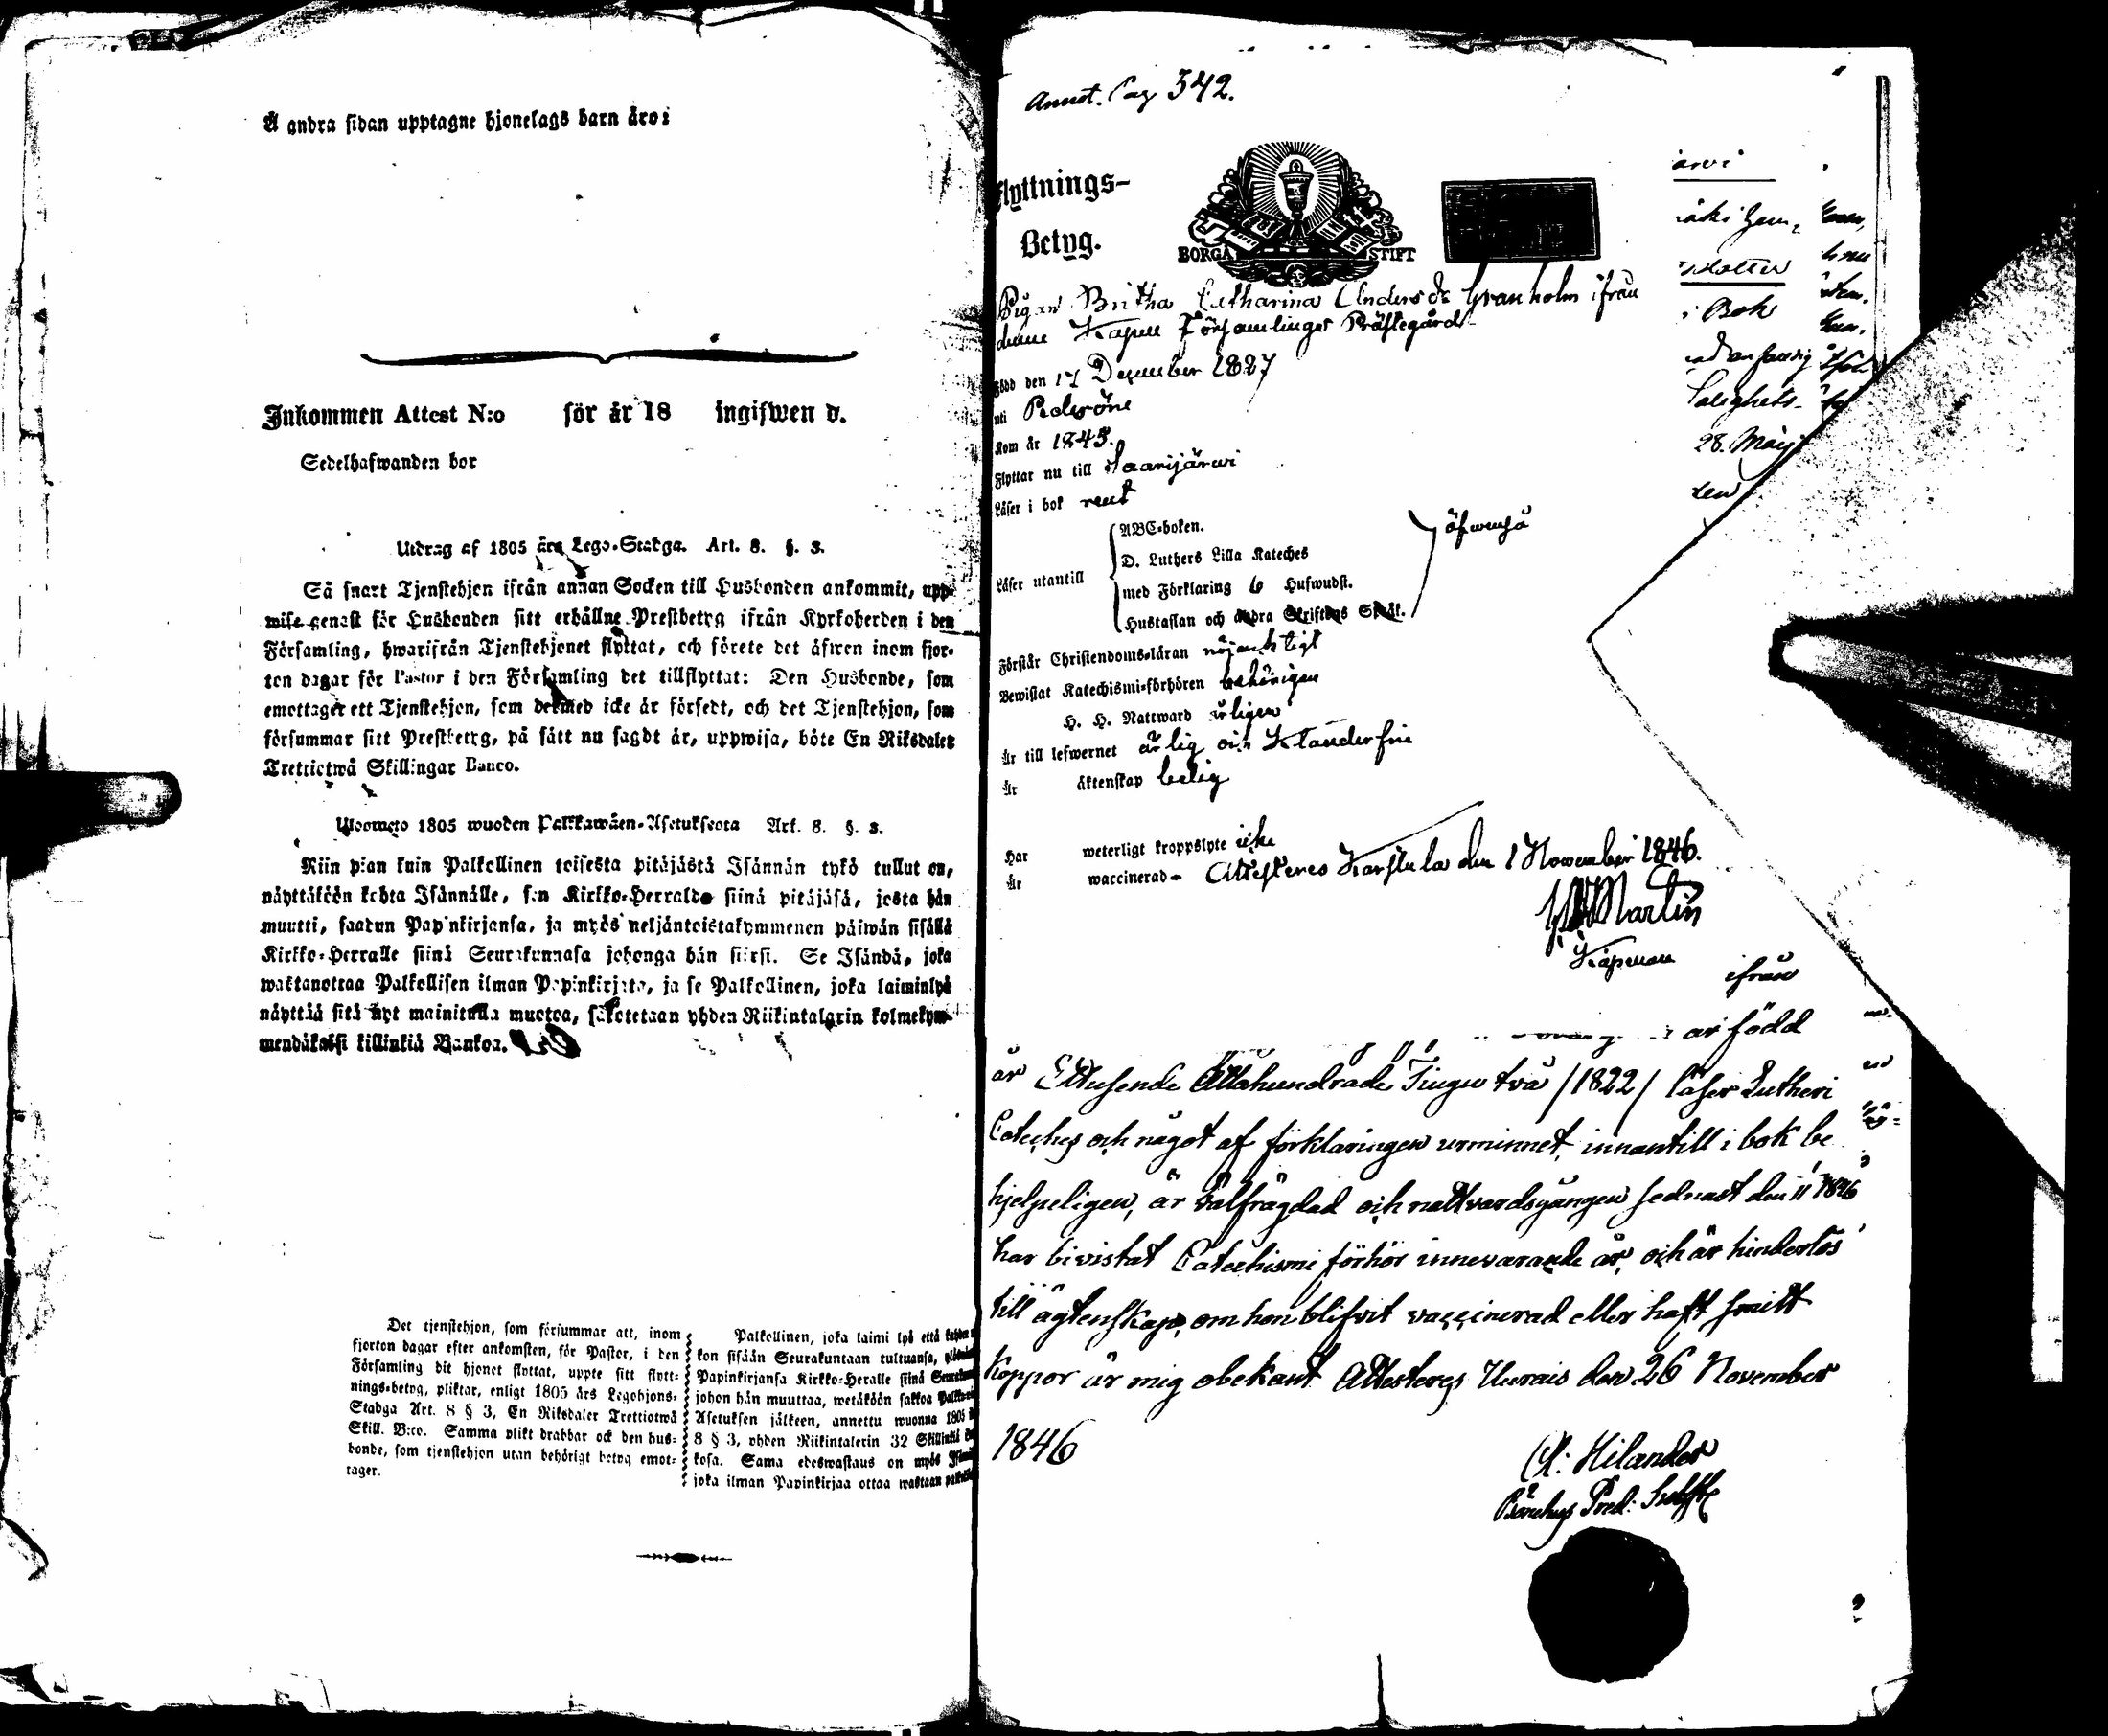 Å andra sidan upptagne hjonelags barn äro:
Inkommen Attest N:o för år 18 ingifwen d.
Sedelhafwanden bor
Utdrag af 1805 års Lego-Stadga. Art. 8. §. 3.
Så snart Tjenstehjon ifrån annan Socken till Husbonden ankommit, upp-
wise genast för Husbonden sitt erhållne Prestbetyg ifrån Kyrkoherden i den
Församling, hwarifrån Tjenstehjonet flyttat, och förete det äfwen inom fjor-
ton dagar för Pastor i den Församling det tillflyttat: Den Husbonde, som
emottager ett Tjenstehjon, som dermed icke är försedt, och det Tjenstehjon, som
försummar sitt Prestbetyg, på sätt nu sagdt är, uppwisa, böte En Riksdaler
Trettiotwå Skillingar Banco.
1805 wuoden Palkkawäen-Asetuksesta Art. 8. §. 3.
Niin pian kuin Palkollinen toisesta pitäjästä Isännän tykö tullut on,
näyttäköön kohta Isännälle, sen Kirkko-Herralda siinä pitäjäsä, josta hän
muutti, saadun Papinkirjansa, ja myös neljäntoistakymmenen päiwän sisällä
Kirkko-Herralle siinä Seurakunnasa johonga hän siirsi. Se Isändä, joka
wastanottaa Palkollisen ilman Papinkirjata, ja se Palkollinen, joka laiminlyö
näyttää sitä nyt mainitulla muotoa, sakotetaan yhden Riikintalarin kolmekym-
mendäkaksi killinkiä Bankoa.
Det tjenstehjon, som försummar att, inom
fjorton dagar efter ankomsten, för Pastor, i den
Församling dit hjonet flyttat, uppte sitt flytt-
nings-betyg, pliktar, enligt 1805 års Legohjons-
Stadga Art. 8 § 3, En Riksdaler Trettiotwå
Skill. B:co. Samma plikt drabbar ock den hus-
bonde, som tjenstehjon utan behörigt betyg emot-
tager.
Palkollinen, joka laimi lyö että
kon sisään Seurakuntaan tultuansa,
Papinkirjansa Kirkko-Heralle siinä
johon hän muuttaa, wetäköön sakkoa
Asetuksen jälkeen, annettu wuonna 1805
8 § 3, yhden Riikintalerin 32 Skillinkiä
kosa. Sama edeswastaus on myös
joka ilman Papinkirjaa ottaa wastaan
Annot. Pag 342.
Flyttnings-
Betyg.
BORGÅ STIFT
Pigan Britha Catharina Anders dr Granholm ifrån
denne Kapell Församlings Prästegård
Född den 17 December 1827
uti Pedersöre
Kom år 1845.
Flyttar nu till Saarijärwi
Läser i bok rent
Läser utantill
ABC-boken.
D. Luthers Lilla Kateches
med Förklaring 6 Hufwudst.
Hustaflan och andra Skriftens Språk.
äfwenså
Förstår Christendoms-läran nöjacktigt
Bewistat Katechismi-förhören behörigen
H. H. Nattward årligen
Är till lefwernet ärlig och Klanderfri
Är äktenskap ledig
Har weterligt kroppslyte icke
Är waccinerad- Attesteres Karstula den 1 November 1846.
Martin
Kapellan
arvi
dotter
i Bok
Salighets-
28. Maij
ifrån
är född
år Ettusende Åttahundrade Tiugu två /1822/ läser Lutheri
Cateches och något af förklaringen urminnet, innantill i bok be
hjelpeligen, är välfrägdad och nattvardsgången sednast den 11 1846
har bivistat Catechismi förhör innevarande år, och är hinderlös
till ägtenskap, om hon blifvit vaccinerad eller haft smitt
koppor är mig obekant Attesteres Uurais den 26 November
1846
C: Hilander